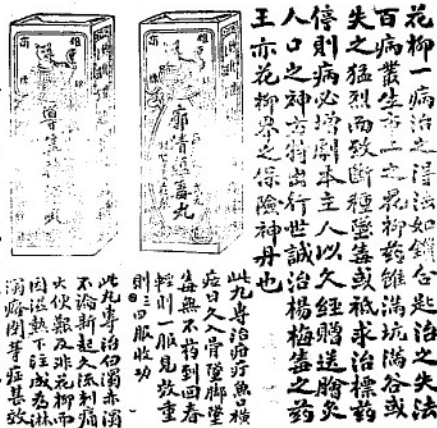 花柳一病治之得法如鑰合匙治之失法
百病叢生市上之花柳葯雖滿坑滿谷或
失之猛烈而致斷種墜毒或祇求治標葯
停則病必增劇本主人以久經贈送膾炙
人口之神方特出行世誠治楊梅毒之葯
王亦花柳界之保險神丹也
廓清疳毒丸
此丸專治疳疔魚口橫
痃日久入骨墜脚墜
毒無不葯到回春
輕則一服見效重
則三四服收功
此丸專治白濁赤濁
不論新起久流刺痛
火便艱及非花柳而
因湿熱下注成為淋
溺癃閉等症甚效